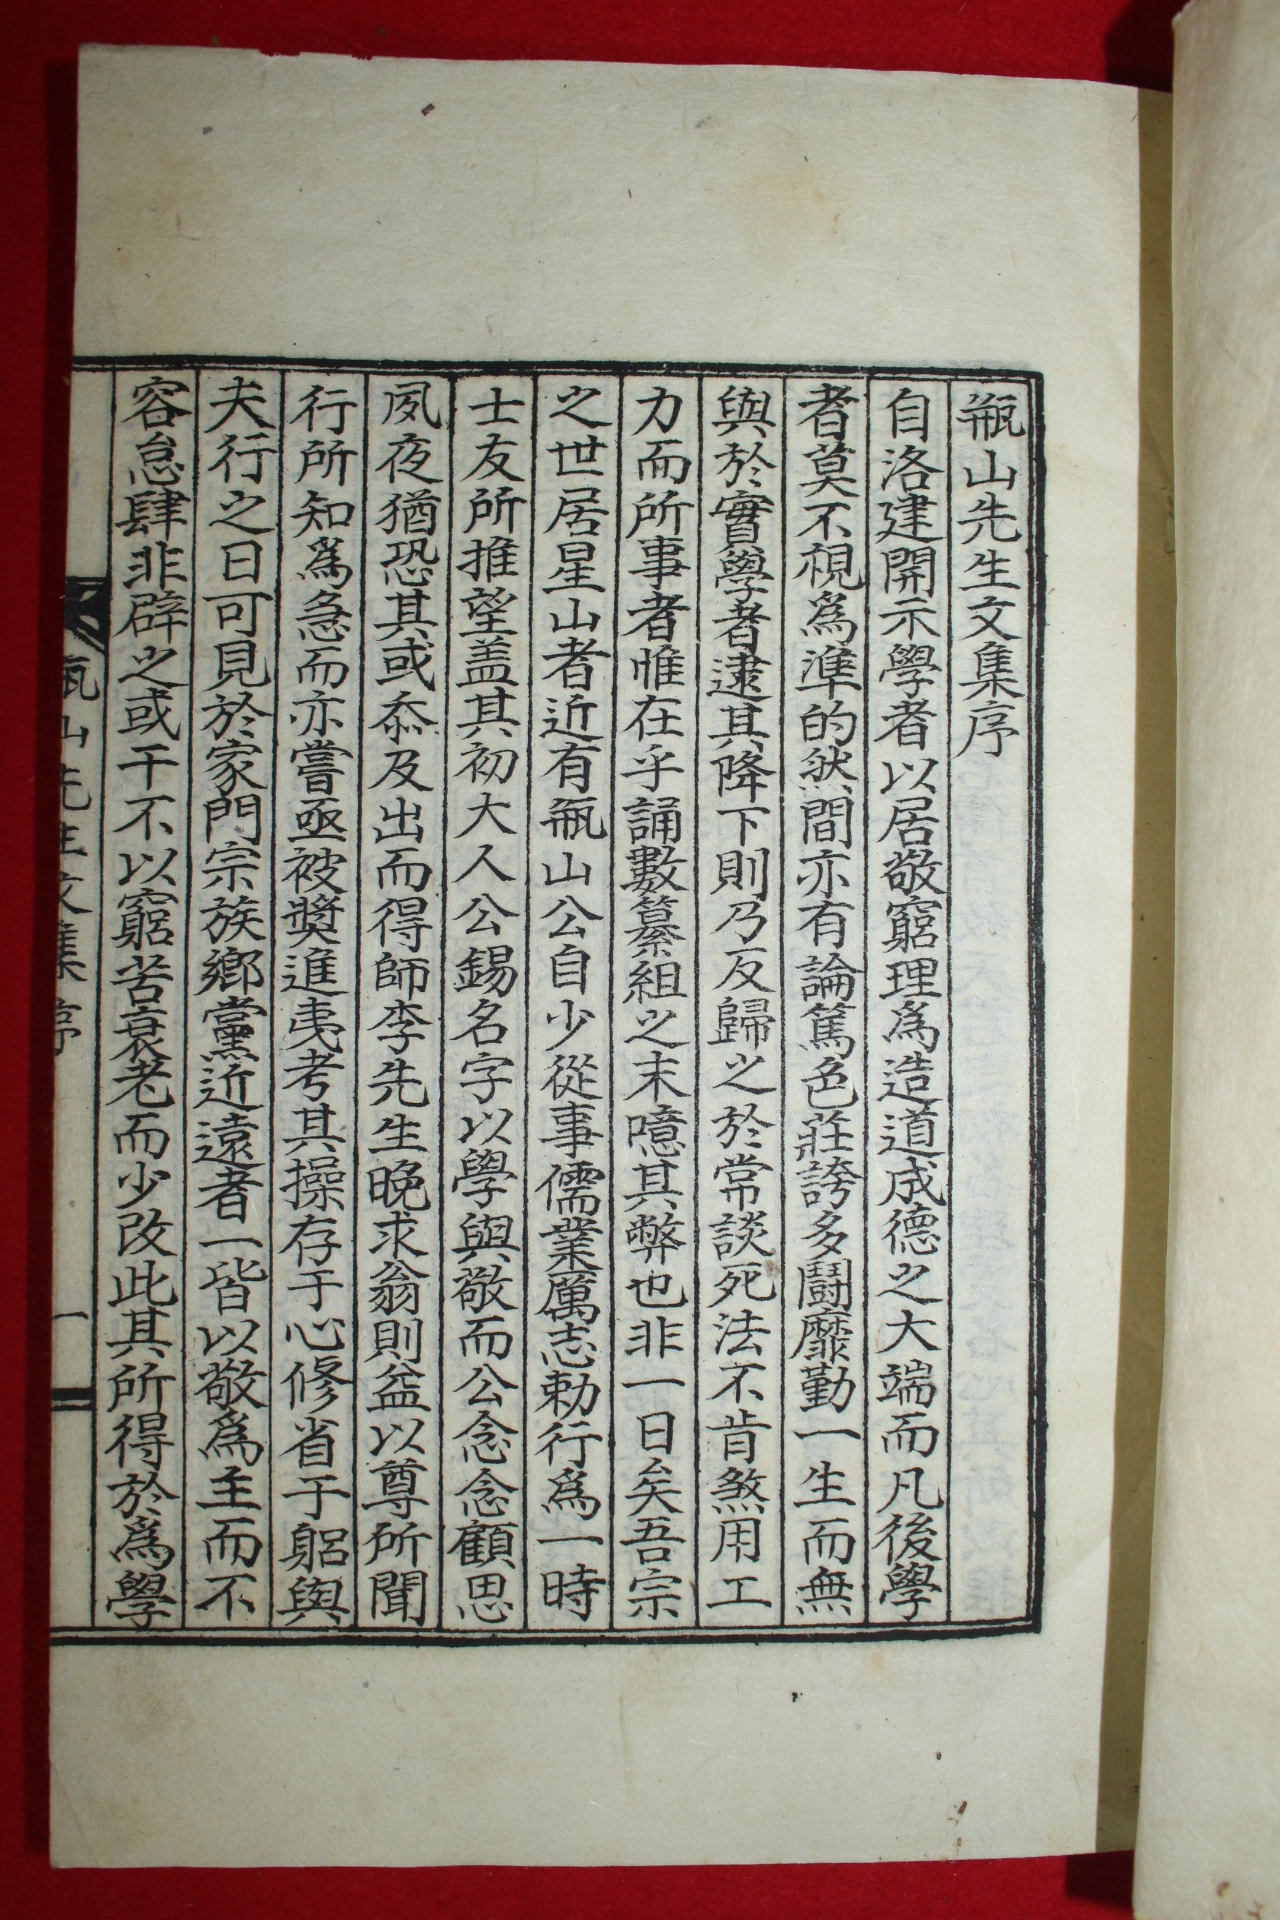 瓶山先生文集序
自洛建開示學者以居敬窮理爲造道成德之大端而凡後學
者莫不視爲準的然間亦有論篤色莊誇多鬪靡勤一生而無
與於實學者逮其降下則乃反歸之於常談死法不肯煞用工
力而所事者惟在乎誦數纂組之末噫其弊也非一日矣吾宗
之世居星山者近有瓶山公自少從事儒業厲志勅行爲一時
士友所推望盖其初大人公錫名字以學與敬而公念念顧思
夙夜猶恐其或忝及出而得師李先生晚求翁則益以尊所聞
行所知爲急而亦嘗亟被奬進夷考其操存于心修省于躳與
夫行之日可見於家門宗族鄉黨近遠者一皆以敬爲主而不
容怠肆非辟之或干不以窮苦衰老而少改此其所得於爲學
瓶山先生文集序
一